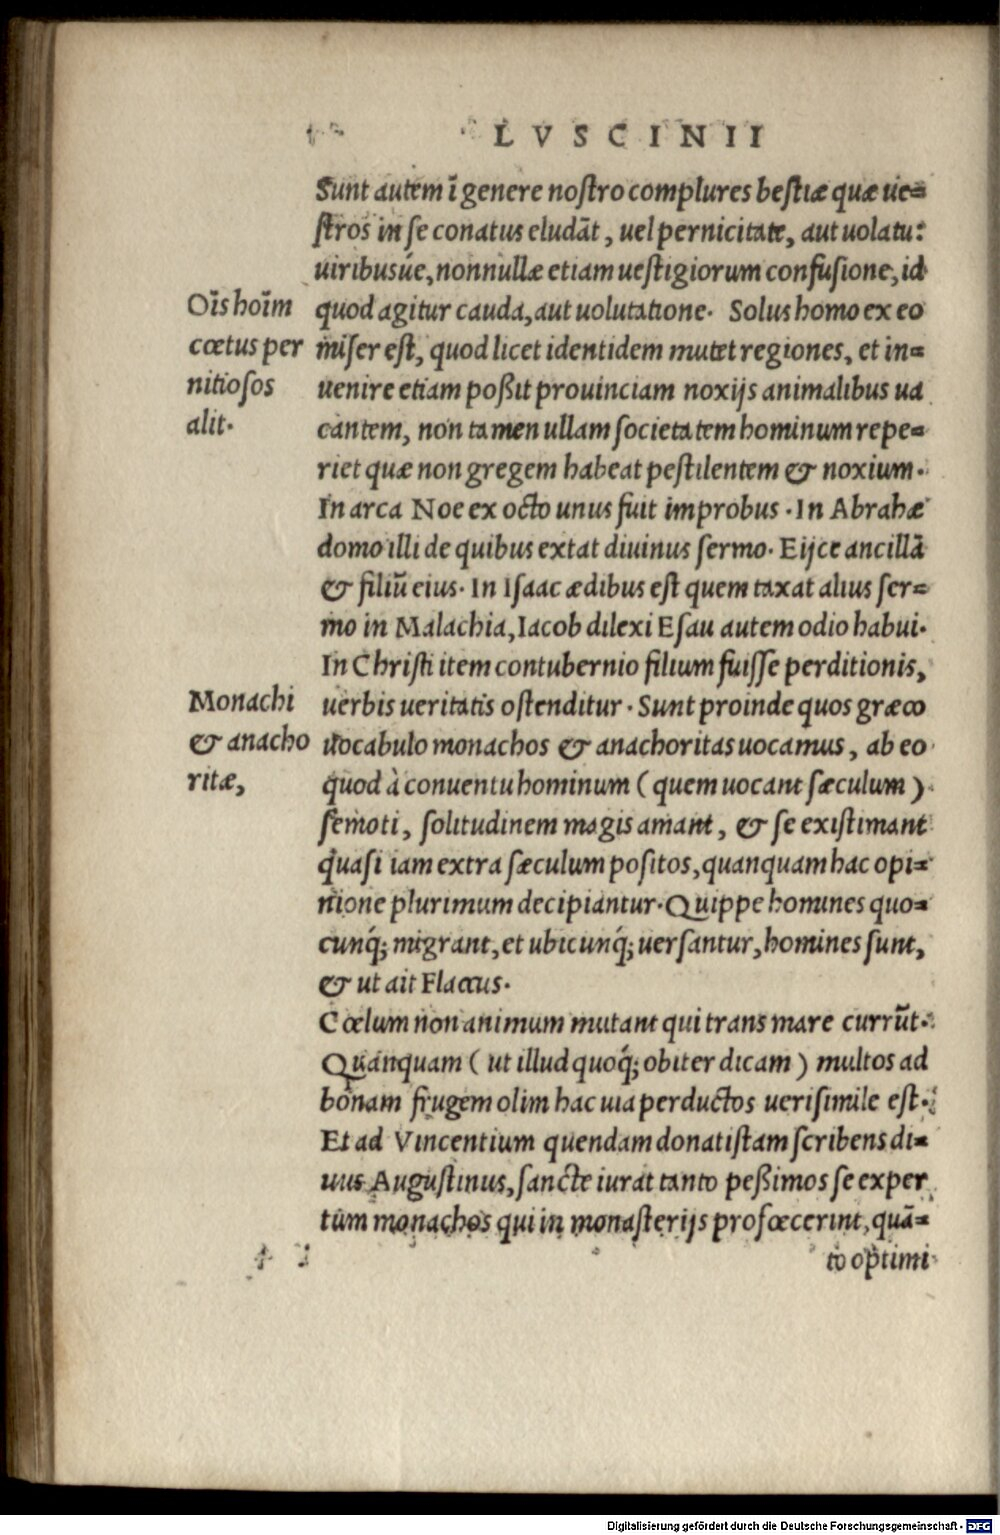 LVSCINII
Sunt autem ĩ genere nostro complures bestiæ quæ ue=
stros in se conatus eludãt, uel pernicitate, aut uolatu:
uiribusúe, nonnullæ etiam uestigiorum confusione, id
quod agitur cauda, aut uolutatione. Solus homo ex eo
miser est, quod licet identidem mutet regiones, et in=
uenire etiam poßit prouinciam noxijs animalibus ua
cantem, non tamen ullam societatem hominum repe=
riet quæ non gregem habeat pestilentem & noxium.
In arca Noe ex octo unus fuit improbus. In Abrahæ
domo illi de quibus extat diuinus sermo. Eijce ancillã
& filiũ eius. In Isaac ædibus est quem taxat alius ser=
mo in Malachia, Iacob dilexi Esau autem odio habui.
In Christi item contubernio filium fuisse perditionis,
uerbis ueritatis ostenditur. Sunt proinde quos græco
uocabulo monachos & anachoritas uocamus, ab eo
quod à conuentu hominum (quem uocant sæculum)
semoti, solitudinem magis amant, & se existimant
quasi iam extra sæculum positos, quanquam hac opi=
nione plurimum decipiantur. Quippe homines quo=
cunq́; migrant, et ubicunq́; uersantur, homines sunt,
& ut ait Flaccus.
Cœlum non animum mutant qui trans mare currũt.
Quanquam (ut illud quoq́; obiter dicam) multos ad
bonam frugem olim hac uia perductos uerisimile est.
Et ad Vincentium quendam donatistam scribens di=
uus Augustinus, sancte iurat tanto peßimos se exper
tum monachos qui in monasterijs profœcerint, quã=
to optimi
Oĩs hoĩm
cœtus per
nitiosos
alit.
Monachi
& anacho
ritæ,
Digitalisierung gefördert durch die Deutsche Forschungsgemeinschaft - DFG